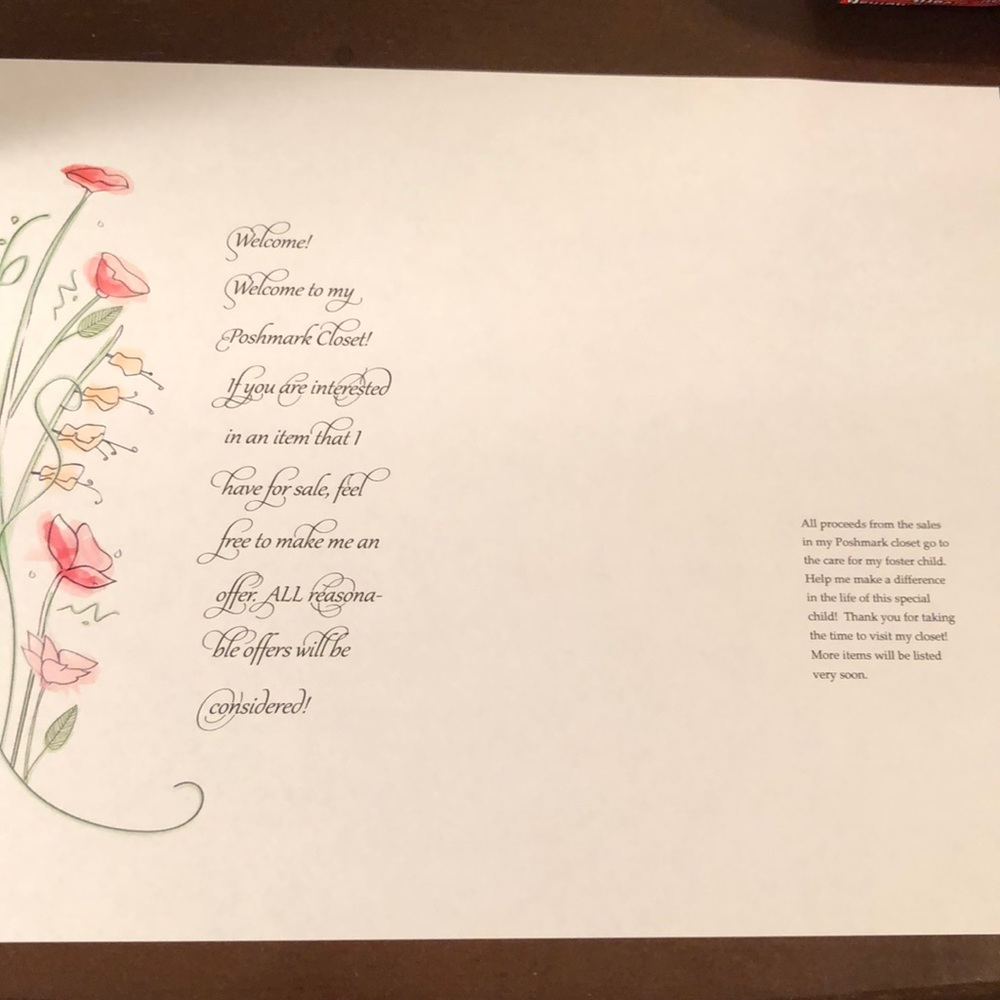 Welcome!
Welcome to my
Poshmark Closet!
If you are interested
in an item that I
have for sale, feel
free to make me an
offer. ALL reasona-
ble offers will be
considered!
All proceeds from the sales
in my Poshmark closet go to
the care for my foster child.
Help me make a difference
in the life of this special
child! Thank you for taking
the time to visit my closet!
More items will be listed
very soon.